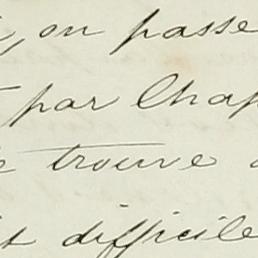 , on passe
par Chap
trouve
difficile